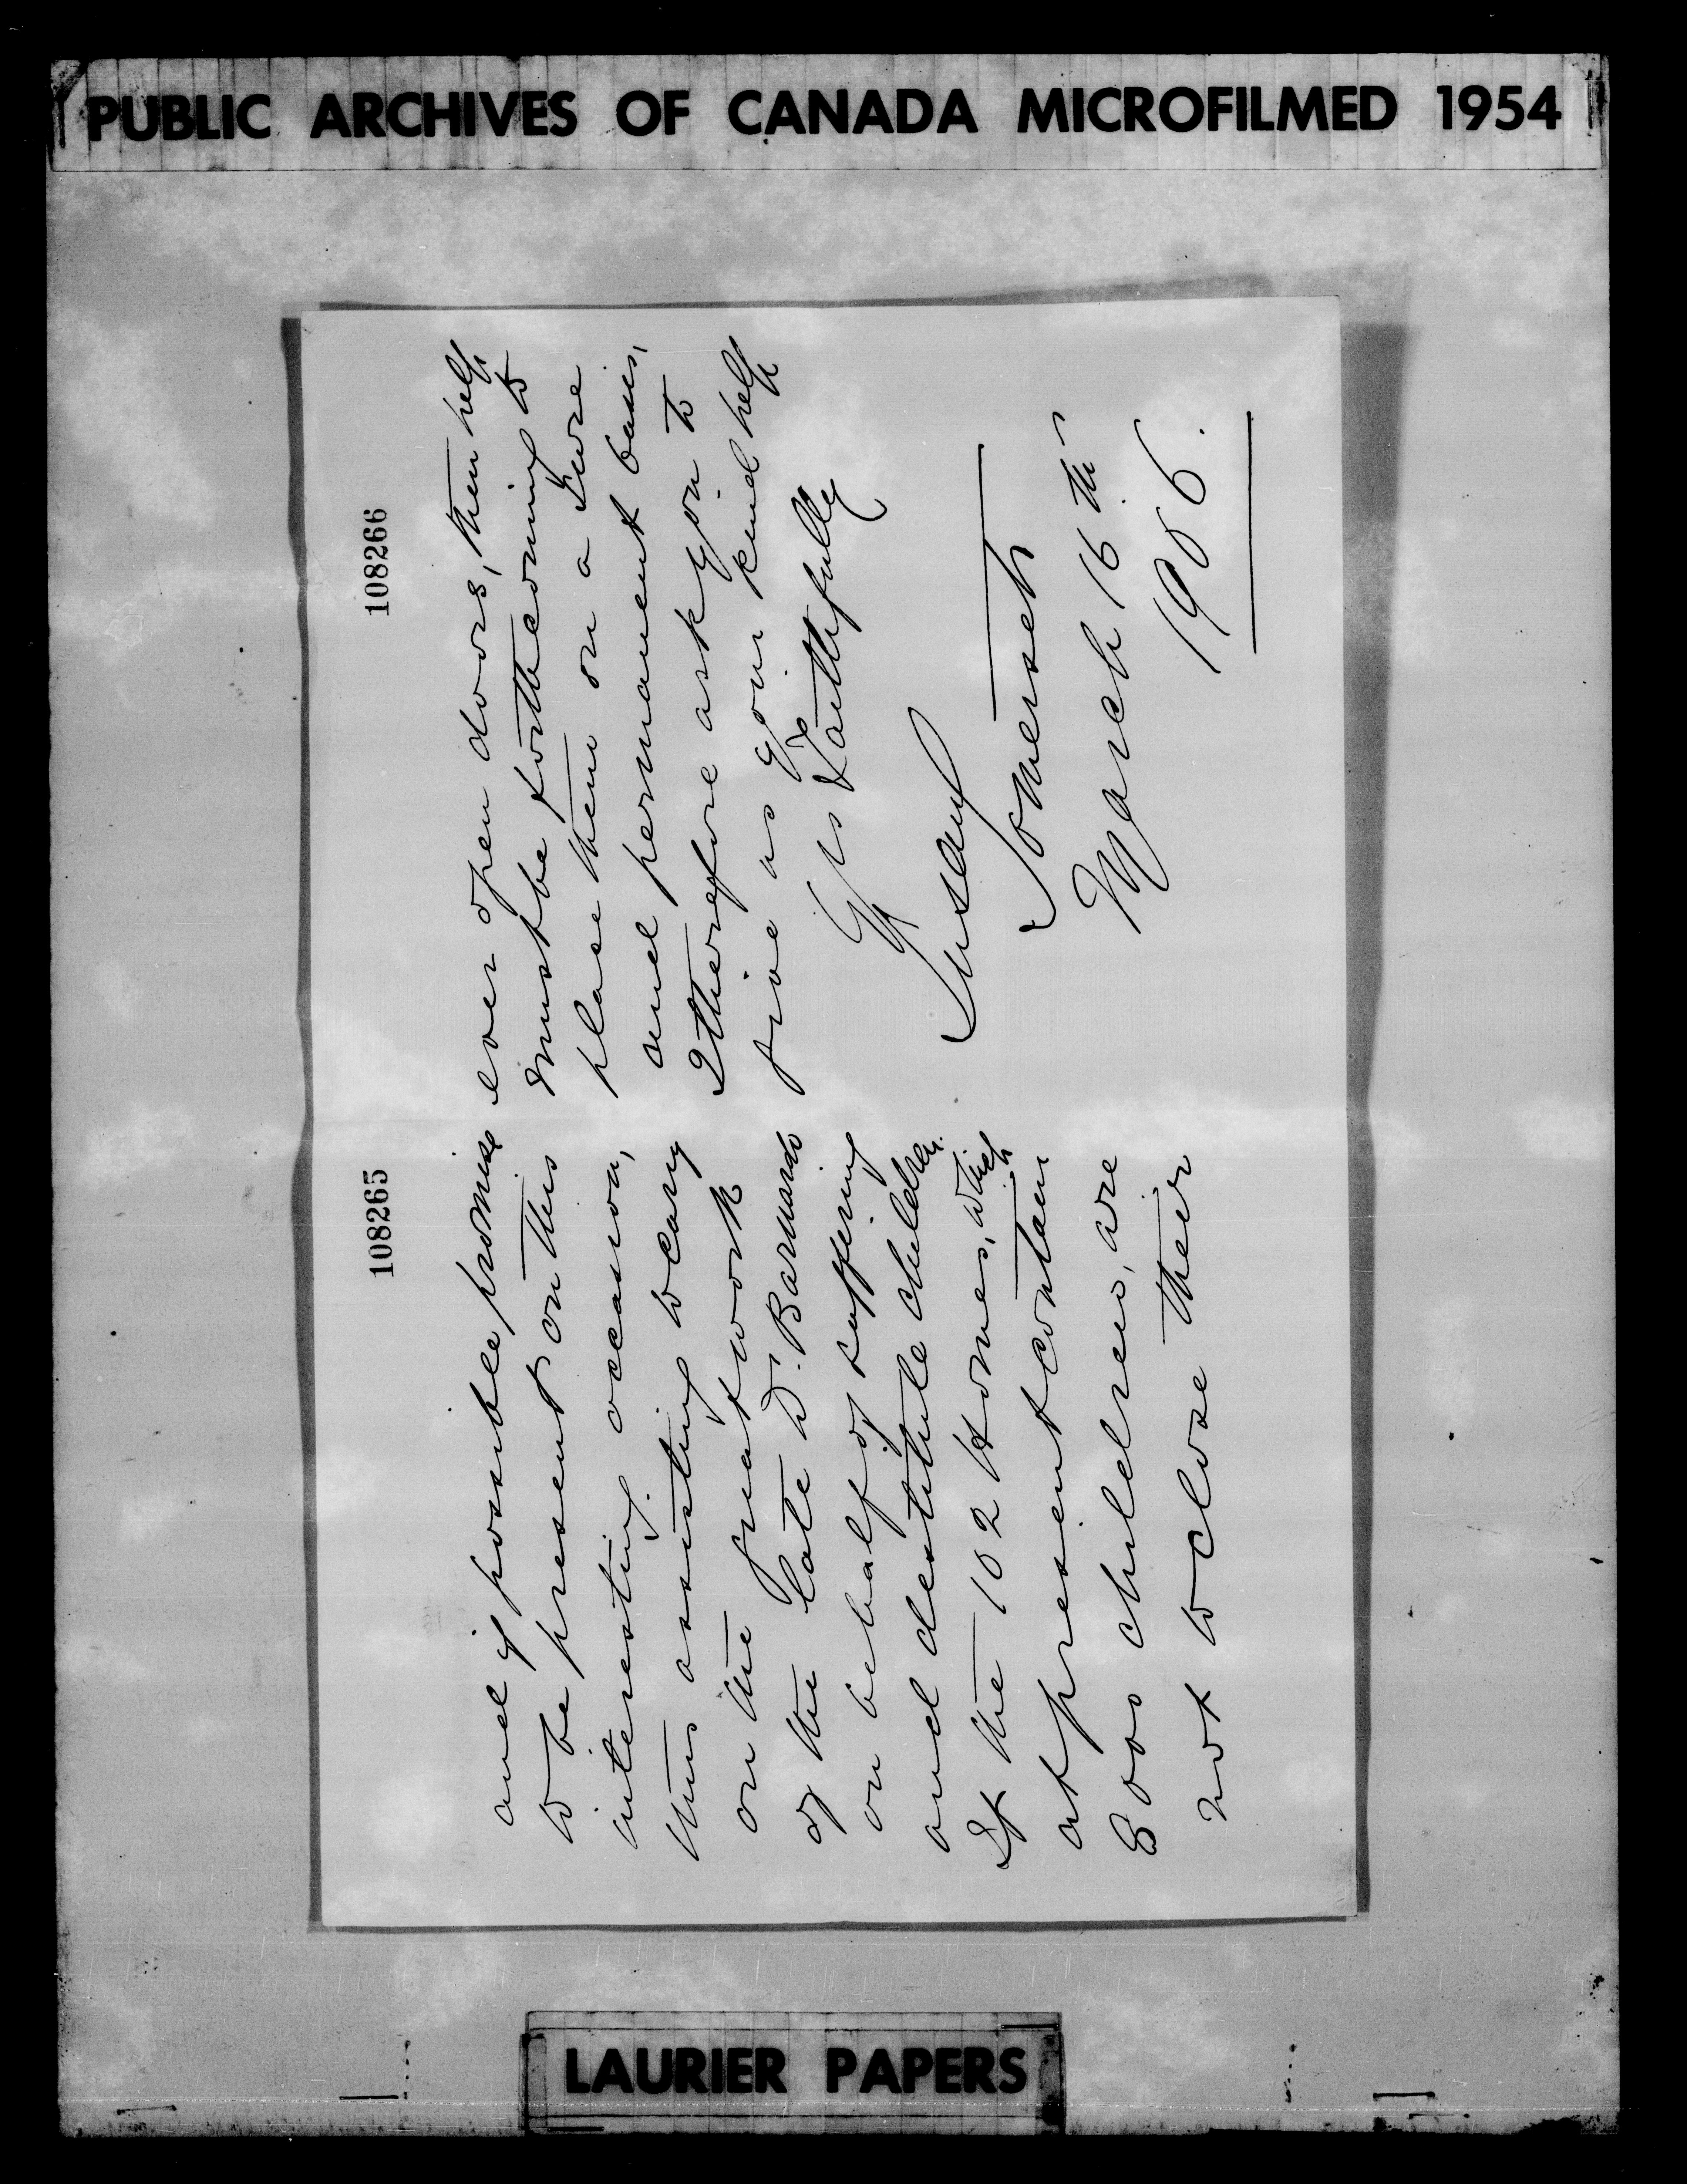 PUBLIC ARCHIVES OF CANADA MICROFILMED 1954
108265
and if possible promise
to be present on this
interesting occasion,
thus assisting to carry
on the great work
of the late Dr. Barnardo
on behalf of suffering
and destitute children.
If the 102 Homes, which
at present contain
8000 children, are
not to close their
108266
ever open doors, then help
must be forthcoming to
place them on a sure
and permanent basis,
I therefore ask you to
give us your kind help
Yrs faithfully
Susan
Somerset
March 16th
1906.
LAURIER PAPERS